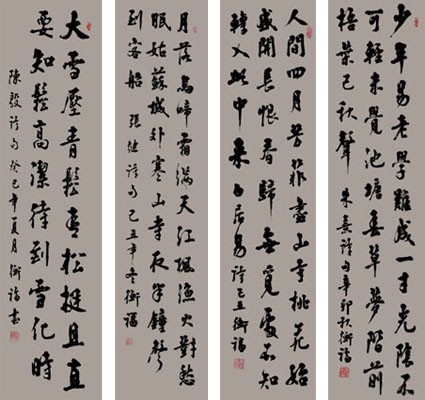 少年易老學難成一寸光陰不
可輕未覺池塘春草夢階前
梧葉已秋聲 朱熹詩句辛卯秋衡
人間四月芳菲盡山寺桃花始
盛開長恨春歸無覓處不知
轉入此中來 白居易詩己丑衡
月落烏啼霜滿天江楓漁火對愁
眠姑蘇城外寒山寺夜半鐘聲
到客船 張繼詩句己丑年冬衡
大雪壓青鬆青松挺且直
要知鬆高潔待到雪化時
陳毅詩句癸巳年夏月衡書